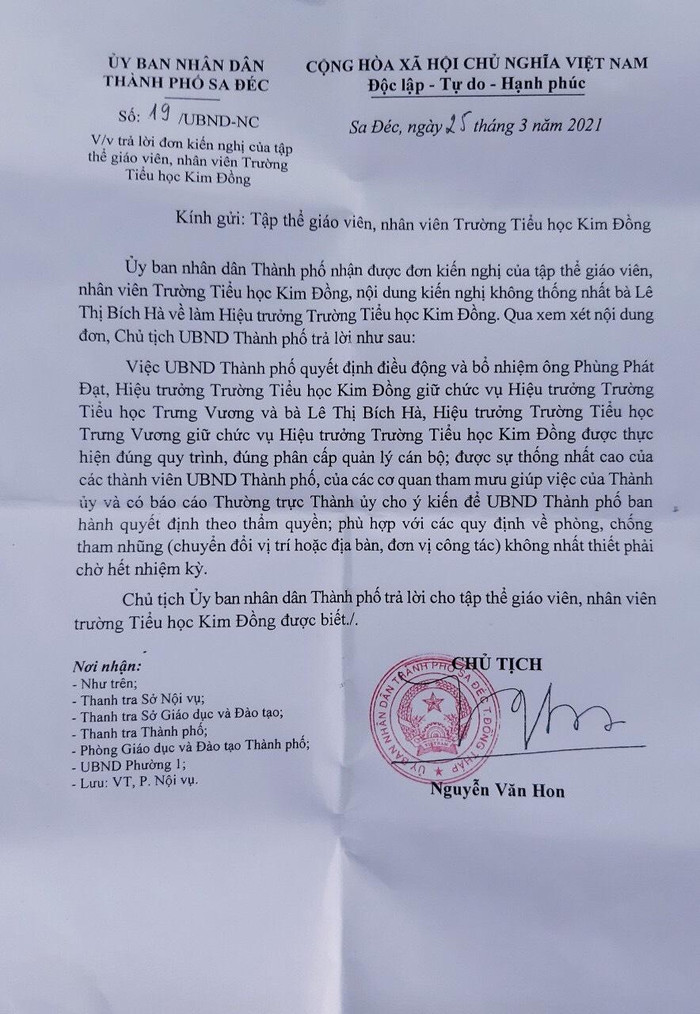 ỦY BAN NHÂN DÂN
THÀNH PHỐ SA ĐÉC
Số: 19 /UBND-NC
V/v trả lời đơn kiến nghị của tập
thể giáo viên, nhân viên Trường
Tiểu học Kim Đồng
CỘNG HÒA XÃ HỘI CHỦ NGHĨA VIỆT NAM
Độc lập - Tự do - Hạnh phúc
Sa Đéc, ngày 25 tháng 3 năm 2021
Kính gửi: Tập thể giáo viên, nhân viên Trường Tiểu học Kim Đồng
Ủy ban nhân dân Thành phố nhận được đơn kiến nghị của tập thể giáo viên,
nhân viên Trường Tiểu học Kim Đồng, nội dung kiến nghị không thống nhất bà Lê
Thị Bích Hà về làm Hiệu trưởng Trường Tiểu học Kim Đồng. Qua xem xét nội dung
đơn, Chủ tịch UBND Thành phố trả lời như sau:
Việc UBND Thành phố quyết định điều động và bổ nhiệm ông Phùng Phát
Đạt, Hiệu trưởng Trường Tiểu học Kim Đồng giữ chức vụ Hiệu trưởng Trường
Tiểu học Trưng Vương và bà Lê Thị Bích Hà, Hiệu trưởng Trường Tiểu học
Trưng Vương giữ chức vụ Hiệu trưởng Trường Tiểu học Kim Đồng được thực
hiện đúng quy trình, đúng phân cấp quản lý cán bộ; được sự thống nhất cao của
các thành viên UBND Thành phố, của các cơ quan tham mưu giúp việc của Thành
ủy và có báo cáo Thường trực Thành ủy cho ý kiến để UBND Thành phố ban
hành quyết định theo thẩm quyền; phù hợp với các quy định về phòng, chống
tham nhũng (chuyển đổi vị trí hoặc địa bàn, đơn vị công tác) không nhất thiết phải
chờ hết nhiệm kỳ.
Chủ tịch Ủy ban nhân dân Thành phố trả lời cho tập thể giáo viên, nhân viên
trường Tiểu học Kim Đồng được biết./.
Nơi nhận:
- Như trên;
- Thanh tra Sở Nội vụ;
- Thanh tra Sở Giáo dục và Đào tạo;
- Thanh tra Thành phố;
- Phòng Giáo dục và Đào tạo Thành phố;
- UBND Phường 1;
- Lưu: VT, P. Nội vụ.
CHỦ TỊCH
ỦY BAN NHÂN DÂN THÀNH PHỐ SA ĐÉC T.ĐỒNG THÁP
Nguyễn Văn Hon